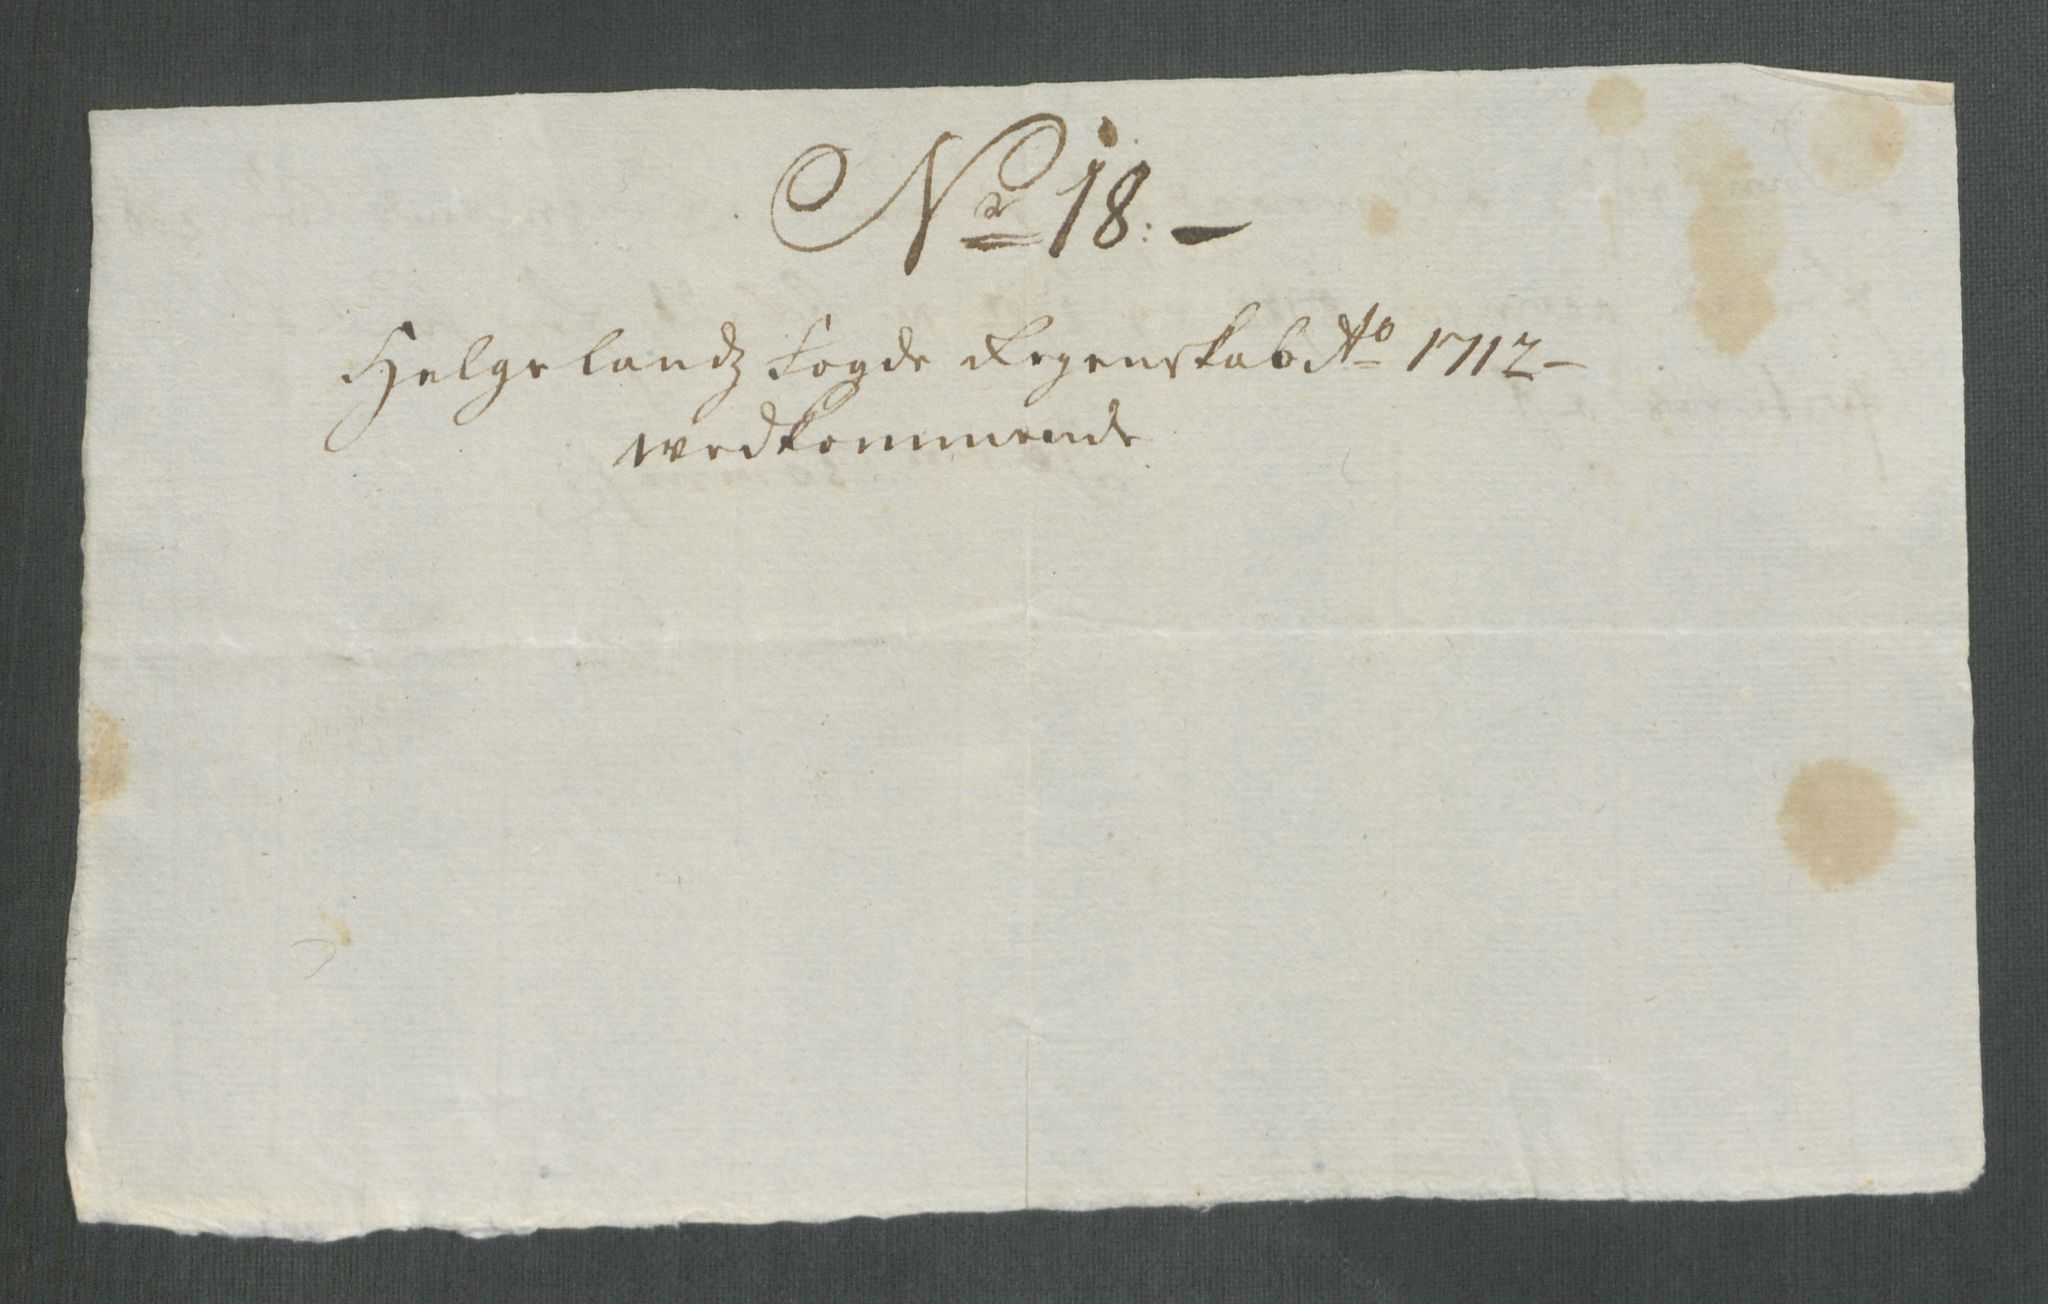 No 18: –
Helgelandz Fogde Regenskab Ao 1712 –
wedkommende